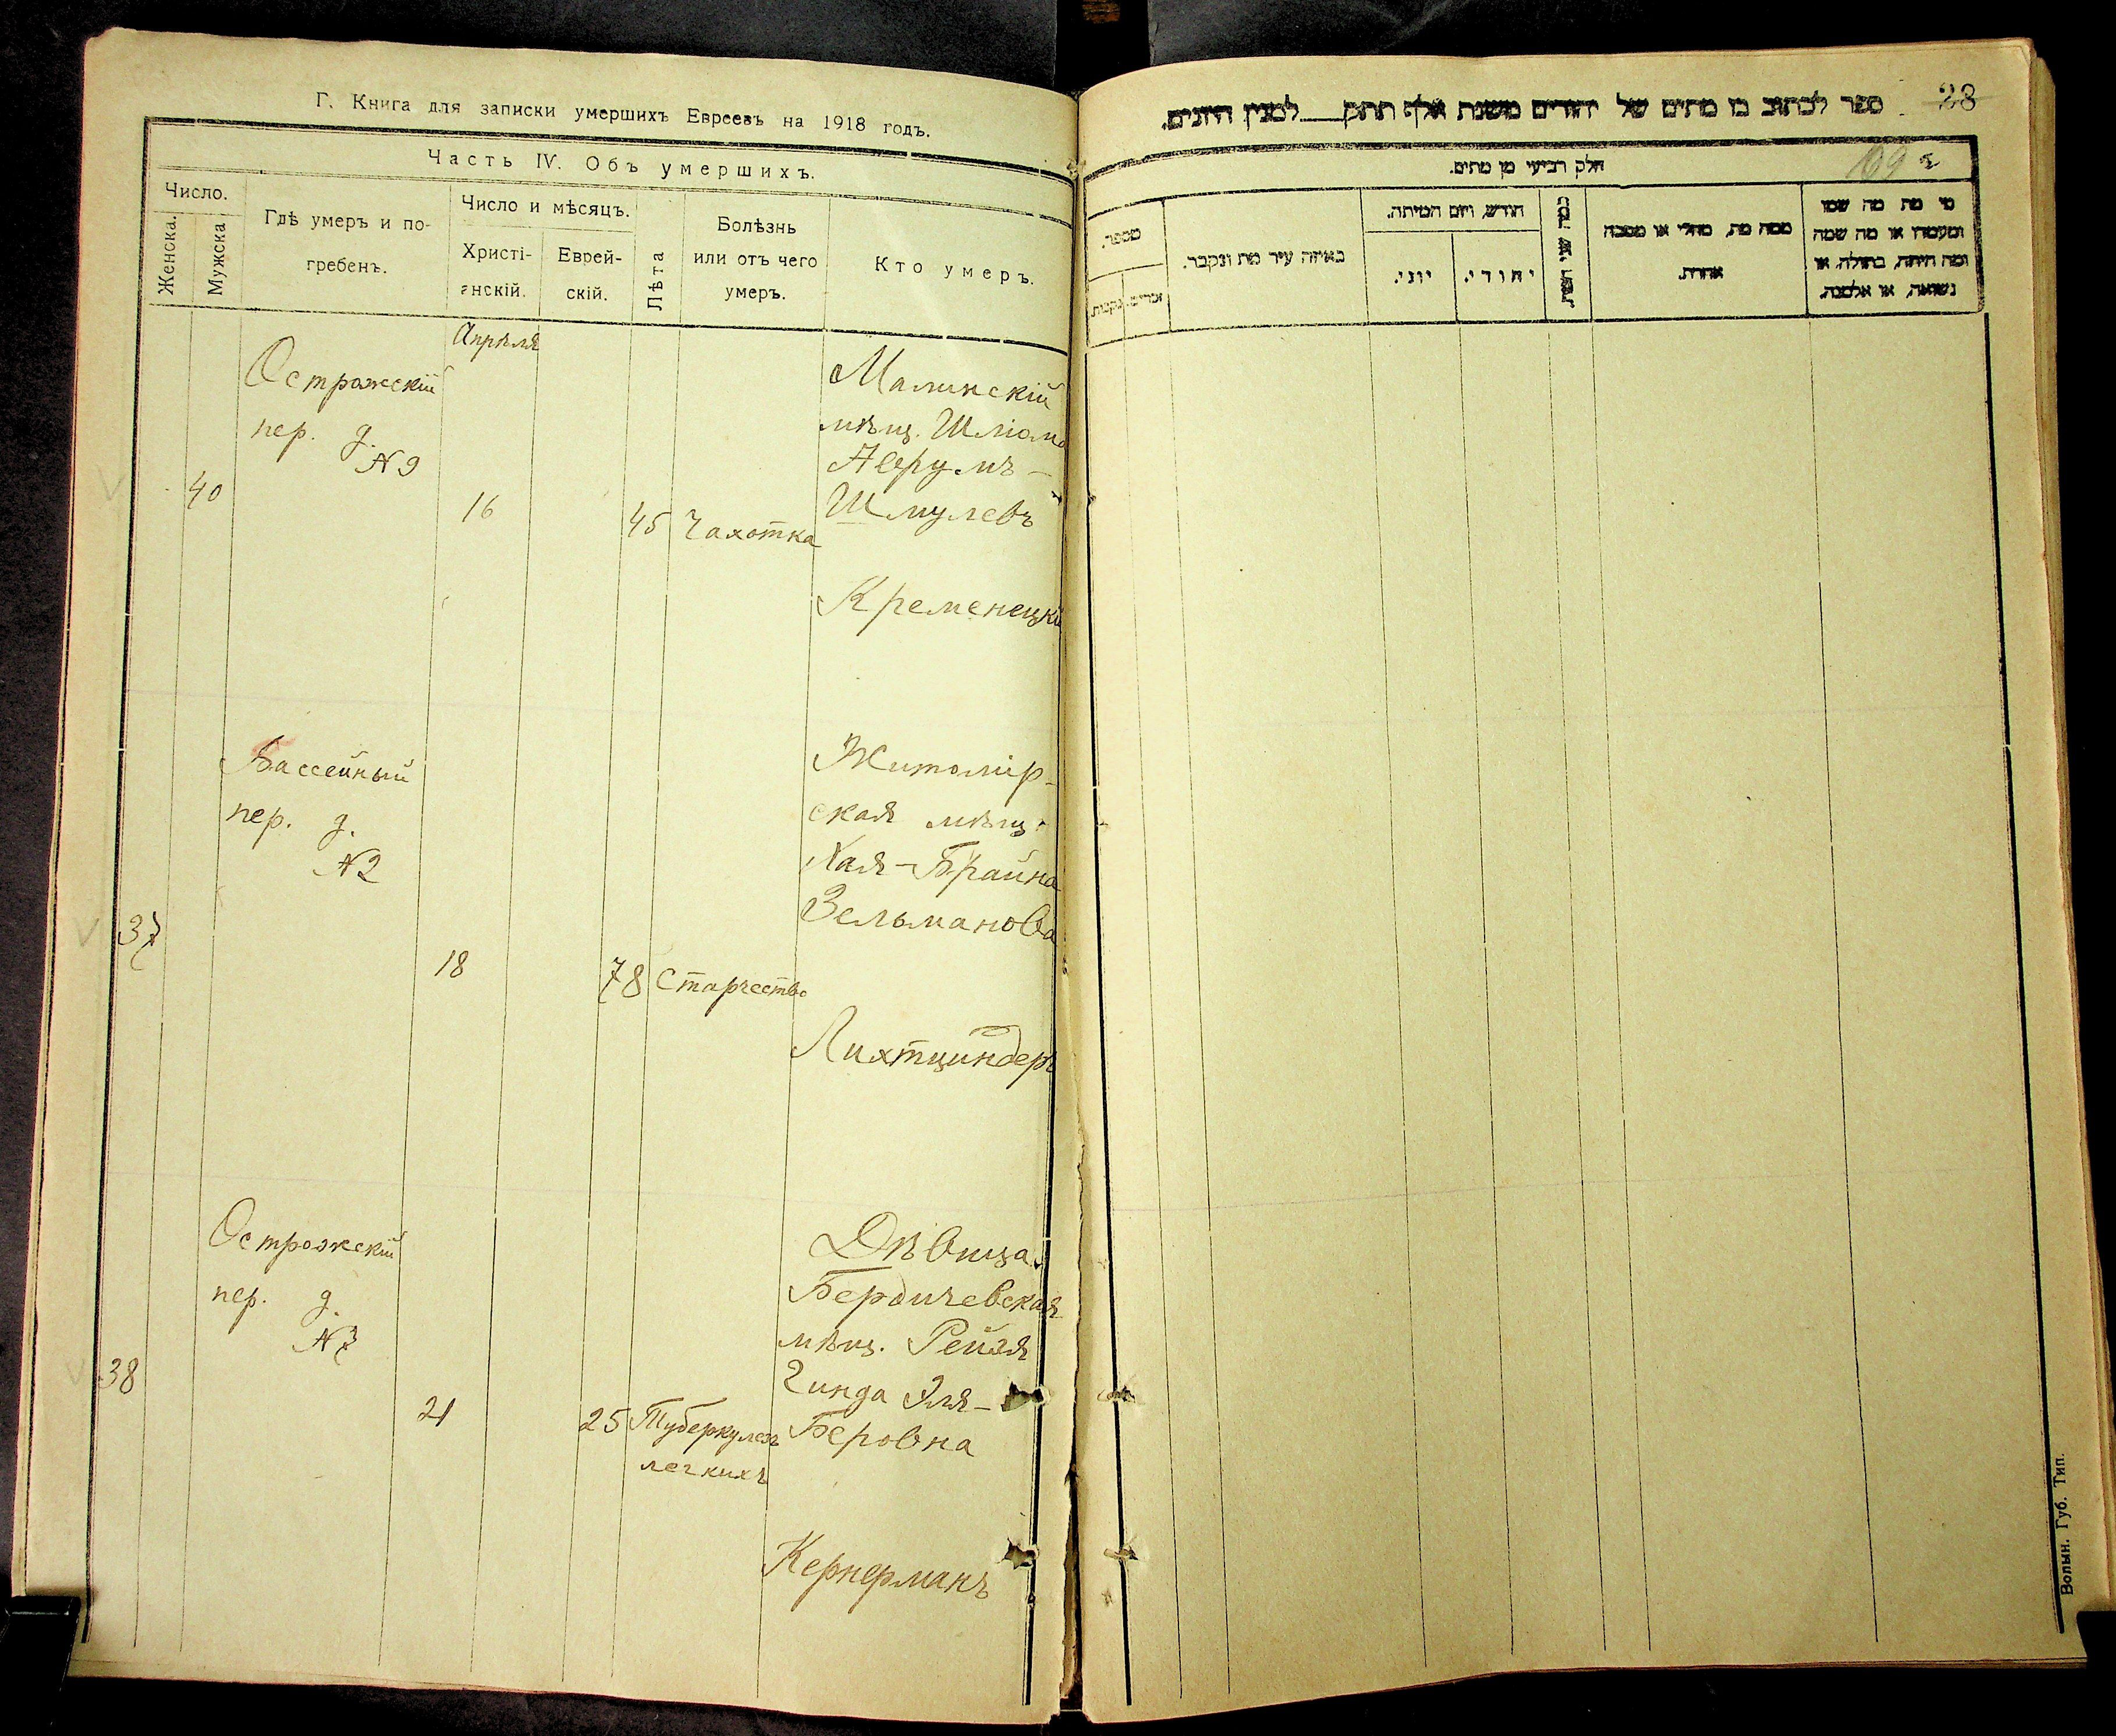 Г. Книга для записки умершихъ Евреевъ на 1918 годъ.
Часть IV. Объ умершихъ.
Число.
Женска.
Мужска
Гдѣ умеръ и по-
гребенъ.
Число и мѣсяцъ.
Христі-
анскій.
Еврей-
скій.
Лѣта
Болѣзнь
или отъ чего
умеръ.
Кто умеръ.
Апрѣля
40
Острожскій
пер. д.
№ 9
16
45
Чахотка
Малинскій
мѣщ. Шліома
Аврумъ-
Шмулевъ
Кременецкій
37
Бассейный
пер. д.
№ 2
18
78
Старчество
Житомір-
ская мѣщ.
Хая-Брайна
Зельманова
Лихтциндеръ
38
Острожскій
пер. д.
№ 7
21
25
Туберкулезъ
легкихъ
Дѣвица
Бердичевская
мѣщ. Рейзя
Гинда Эля-
Беровна
Кернерманъ
28
ספר לכתוב בו מתים של יהודים משנת אלף תתק לමנין היונים.
169
חלק רביעי מן מתים.
מספר.
זכרים.
נקבות.
באיזה עיר מת ונקבר.
חודש, ויום המיתה.
יוני.
יהודי.
כמה שני חייו.
ממה מת, מחלי או מסבה
אחרת.
מי מת מה שמו
ומעמדו או מה שמה
ומה היתה, בתולה, או
נשואה, או אלמנה.
Волын. Губ. Тип.